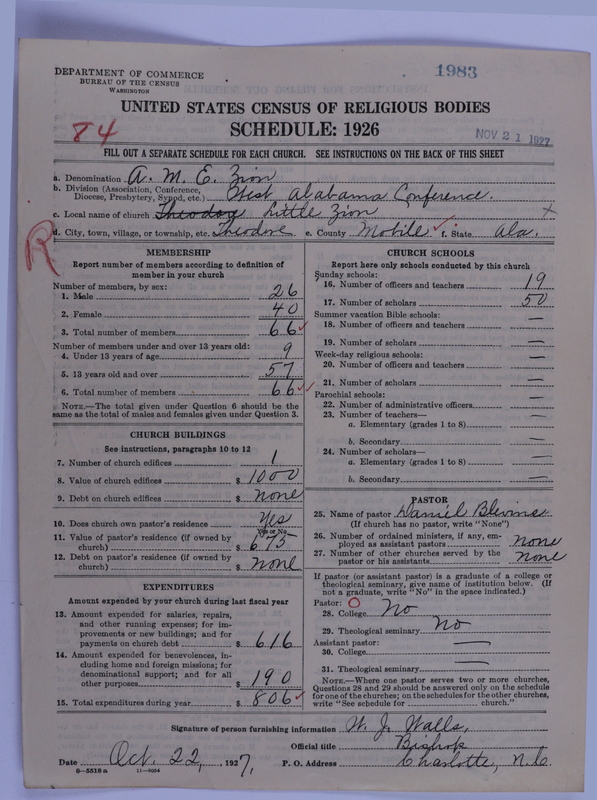 DEPARTMENT OF COMMERCE
BUREAU OF THE CENSUS
WASHINGTON
1983
UNITED STATES CENSUS OF RELIGIOUS BODIES
84
SCHEDULE: 1926
NOV 21 1927
FILL OUT A SEPARATE SCHEDULE FOR EACH CHURCH. SEE INSTRUCTIONS ON THE BACK OF THIS SHEET
a. Denomination A. M. E. Zion
b. Division (Association, Conference, Diocese, Presbytery, Synod, etc.) West Alabama Conference.
c. Local name of church Theodore Little Zion x
R
d. City, town, village, or township, etc. Theodore e. County Mobile ✓ f. State Ala.
MEMBERSHIP
Report number of members according to definition of
member in your church
Number of members, by sex:
1. Male 26
2. Female 40
3. Total number of members 66 ✓
Number of members under and over 13 years old:
4. Under 13 years of age 9
5. 13 years old and over 57
6. Total number of members 66 ✓✓
NOTE.—The total given under Question 6 should be the
same as the total of males and females given under Question 3.
CHURCH BUILDINGS
See instructions, paragraphs 10 to 12
7. Number of church edifices 1
8. Value of church edifices $ 1000
9. Debt on church edifices $ none
10. Does church own pastor's residence Yes
Yes or No
11. Value of pastor's residence (if owned by
church) $ 675
12. Debt on pastor's residence (if owned by
church) $ none
EXPENDITURES
Amount expended by your church during last fiscal year
13. Amount expended for salaries, repairs,
and other running expenses; for im-
provements or new buildings; and for
payments on church debt $ 616
14. Amount expended for benevolences, in-
cluding home and foreign missions; for
denominational support; and for all
other purposes $ 190
15. Total expenditures during year $ 806 ✓
CHURCH SCHOOLS
Report here only schools conducted by this church
Sunday schools:
16. Number of officers and teachers 19
17. Number of scholars 50
Summer vacation Bible schools:
18. Number of officers and teachers —
19. Number of scholars —
Week-day religious schools:
20. Number of officers and teachers —
21. Number of scholars —
Parochial schools:
22. Number of administrative officers —
23. Number of teachers—
a. Elementary (grades 1 to 8) —
b. Secondary —
24. Number of scholars—
a. Elementary (grades 1 to 8) —
b. Secondary —
PASTOR
25. Name of pastor Daniel Blevins
(If church has no pastor, write "None")
26. Number of ordained ministers, if any, em-
ployed as assistant pastors none
27. Number of other churches served by the
pastor or his assistants none
If pastor (or assistant pastor) is a graduate of a college or
theological seminary, give name of institution below. (If
not a graduate, write "No" in the space indicated.)
Pastor: O
28. College No
29. Theological seminary No
Assistant pastor:
30. College —
31. Theological seminary —
NOTE.—Where one pastor serves two or more churches,
Questions 28 and 29 should be answered only on the schedule
for one of the churches; on the schedules for the other churches,
write "See schedule for church."
Signature of person furnishing information W. J. Walls,
Official title Bishop
Date Oct. 22, 1927, P. O. Address Charlotte, N.C.
8—5518 a 11—9054